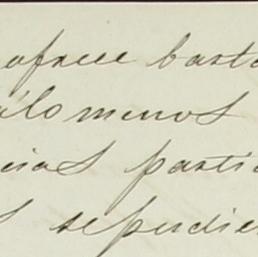 ofrece basta
álo menos
cias parti
s sepudie